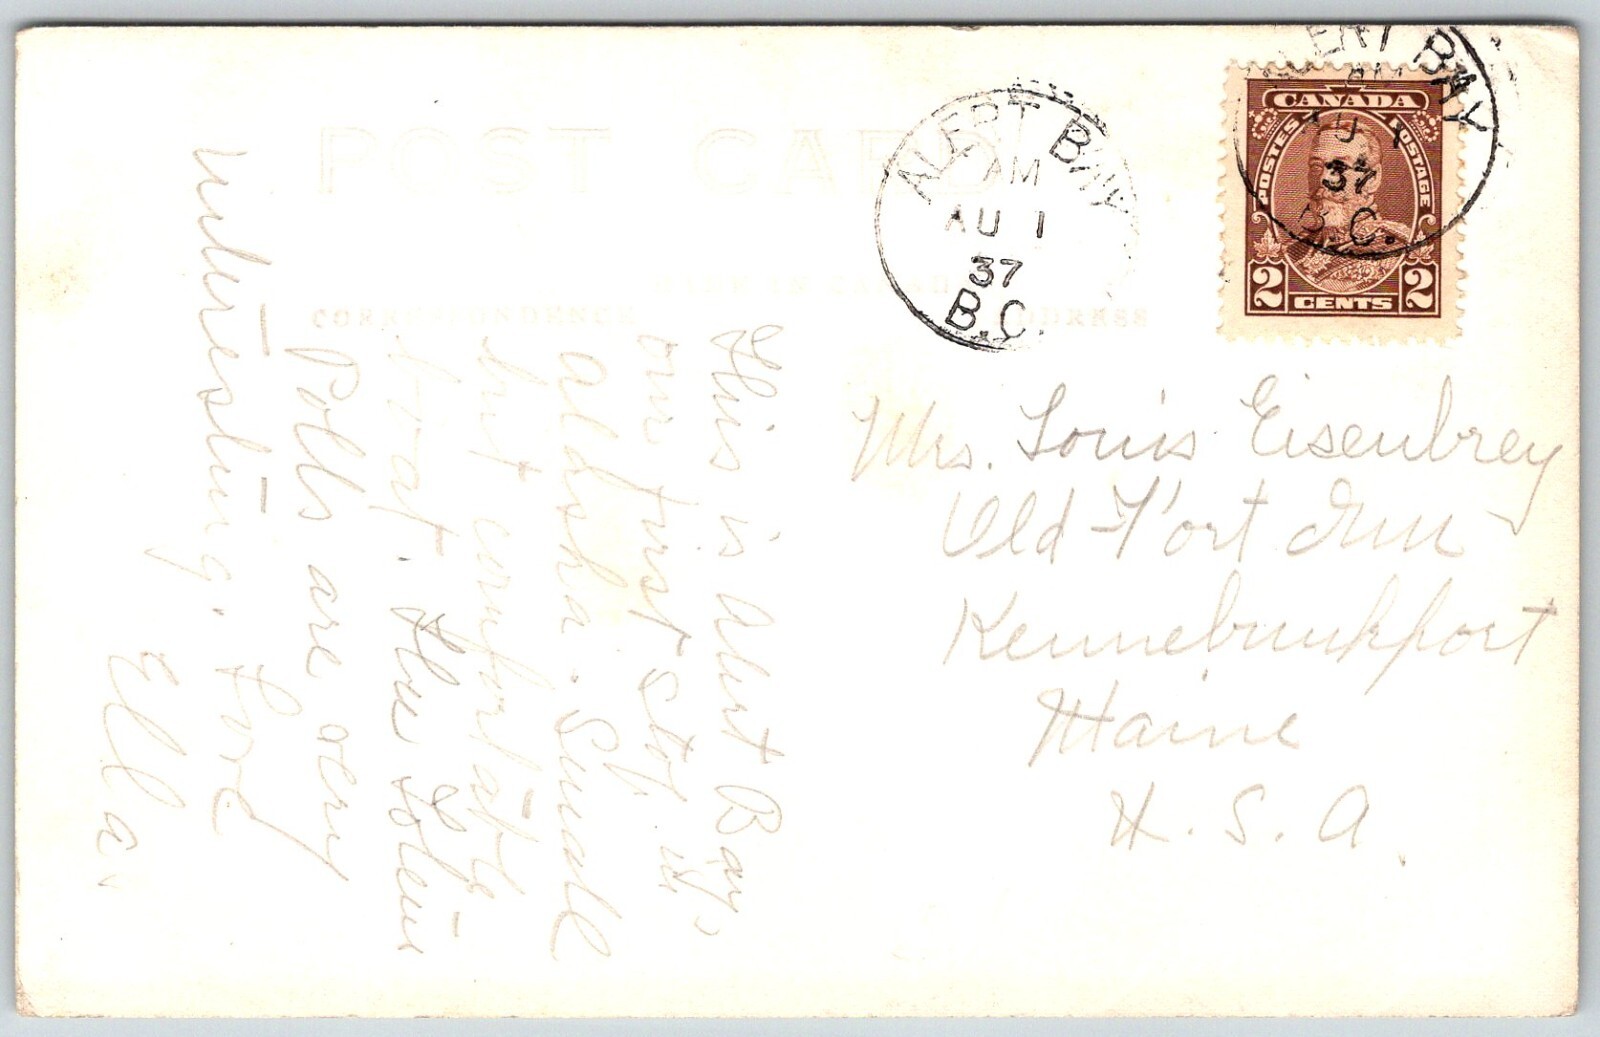 POST CARD
MADE IN CANADA
CORRESPONDENCE
ADDRESS
ALERT BAY
AM
AU 1
37
B.C.
ALERT BAY
AM
AU 1
37
B.C.
CANADA
POSTES POSTAGE
2 CENTS 2
This is Alert Bay,
our first stop in
alaska. Small
but comfortable
boat. The Totem
Polls are very
interesting. Love
Ella.
Mrs. Louis Eisenbrey
Old Fort Inn
Kennebunkport
Maine
U. S. A.